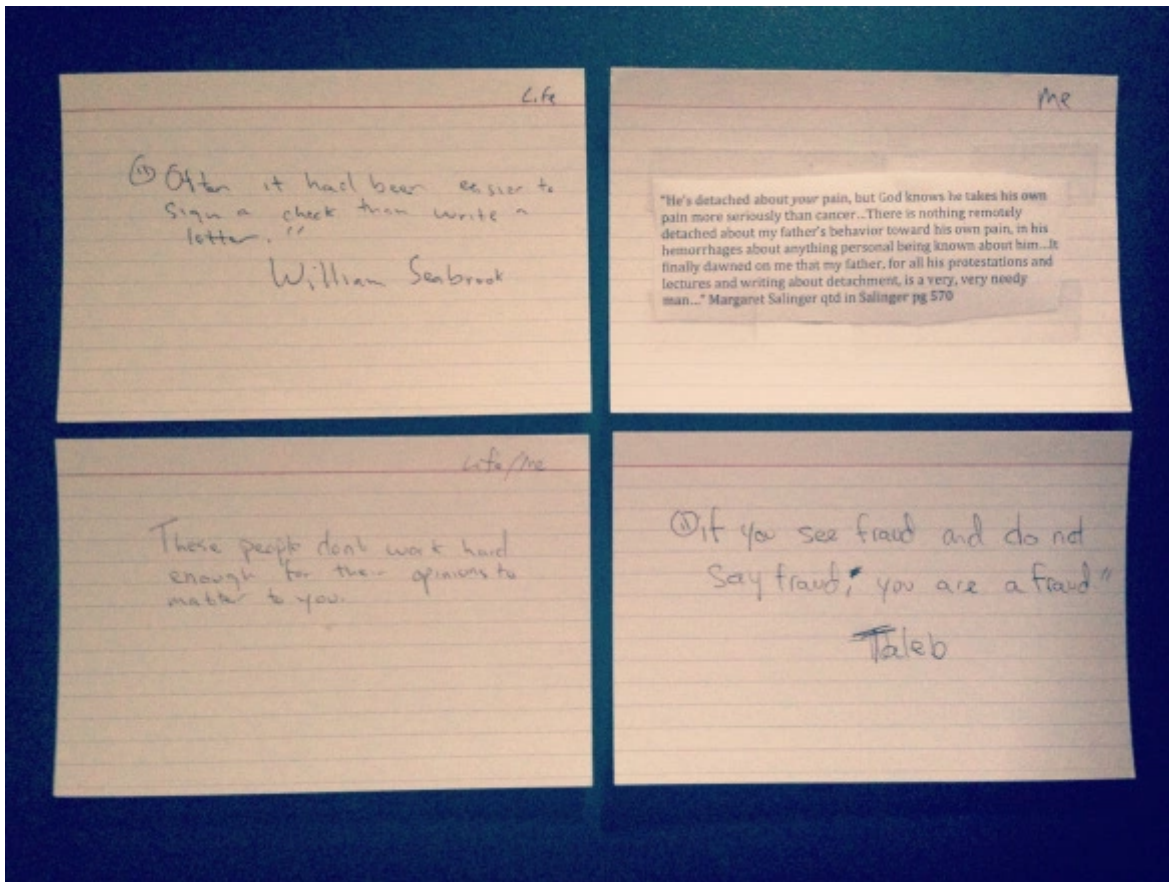 Life
"Often it had been easier to
sign a check than write a
letter."
William Seabrook
Me
"He's detached about your pain, but God knows he takes his own
pain more seriously than cancer...There is nothing remotely
detached about my father's behavior toward his own pain, in his
hemorrhages about anything personal being known about him...It
finally dawned on me that my father, for all his protestations and
lectures and writing about detachment, is a very, very needy
man..." Margaret Salinger qtd in Salinger pg 570
Life/Me
These people dont work hard
enough for their opinions to
matter to you.
"if you see fraud and do not
say fraud, you are a fraud"
Taleb